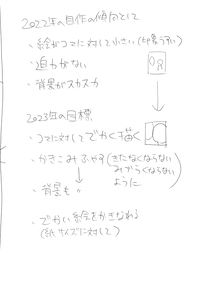 2022年の自作の傾向として
・絵がコマに対して小さい(印象うすい)
・迫力がない
・背景がスカスカ
2023年の目標
・コマに対してでかく描く
・かきこみふやす(きたなくならない
みづらくならない
ように)
・背景も
・でかい絵をかきなれる
(紙サイズに対して)